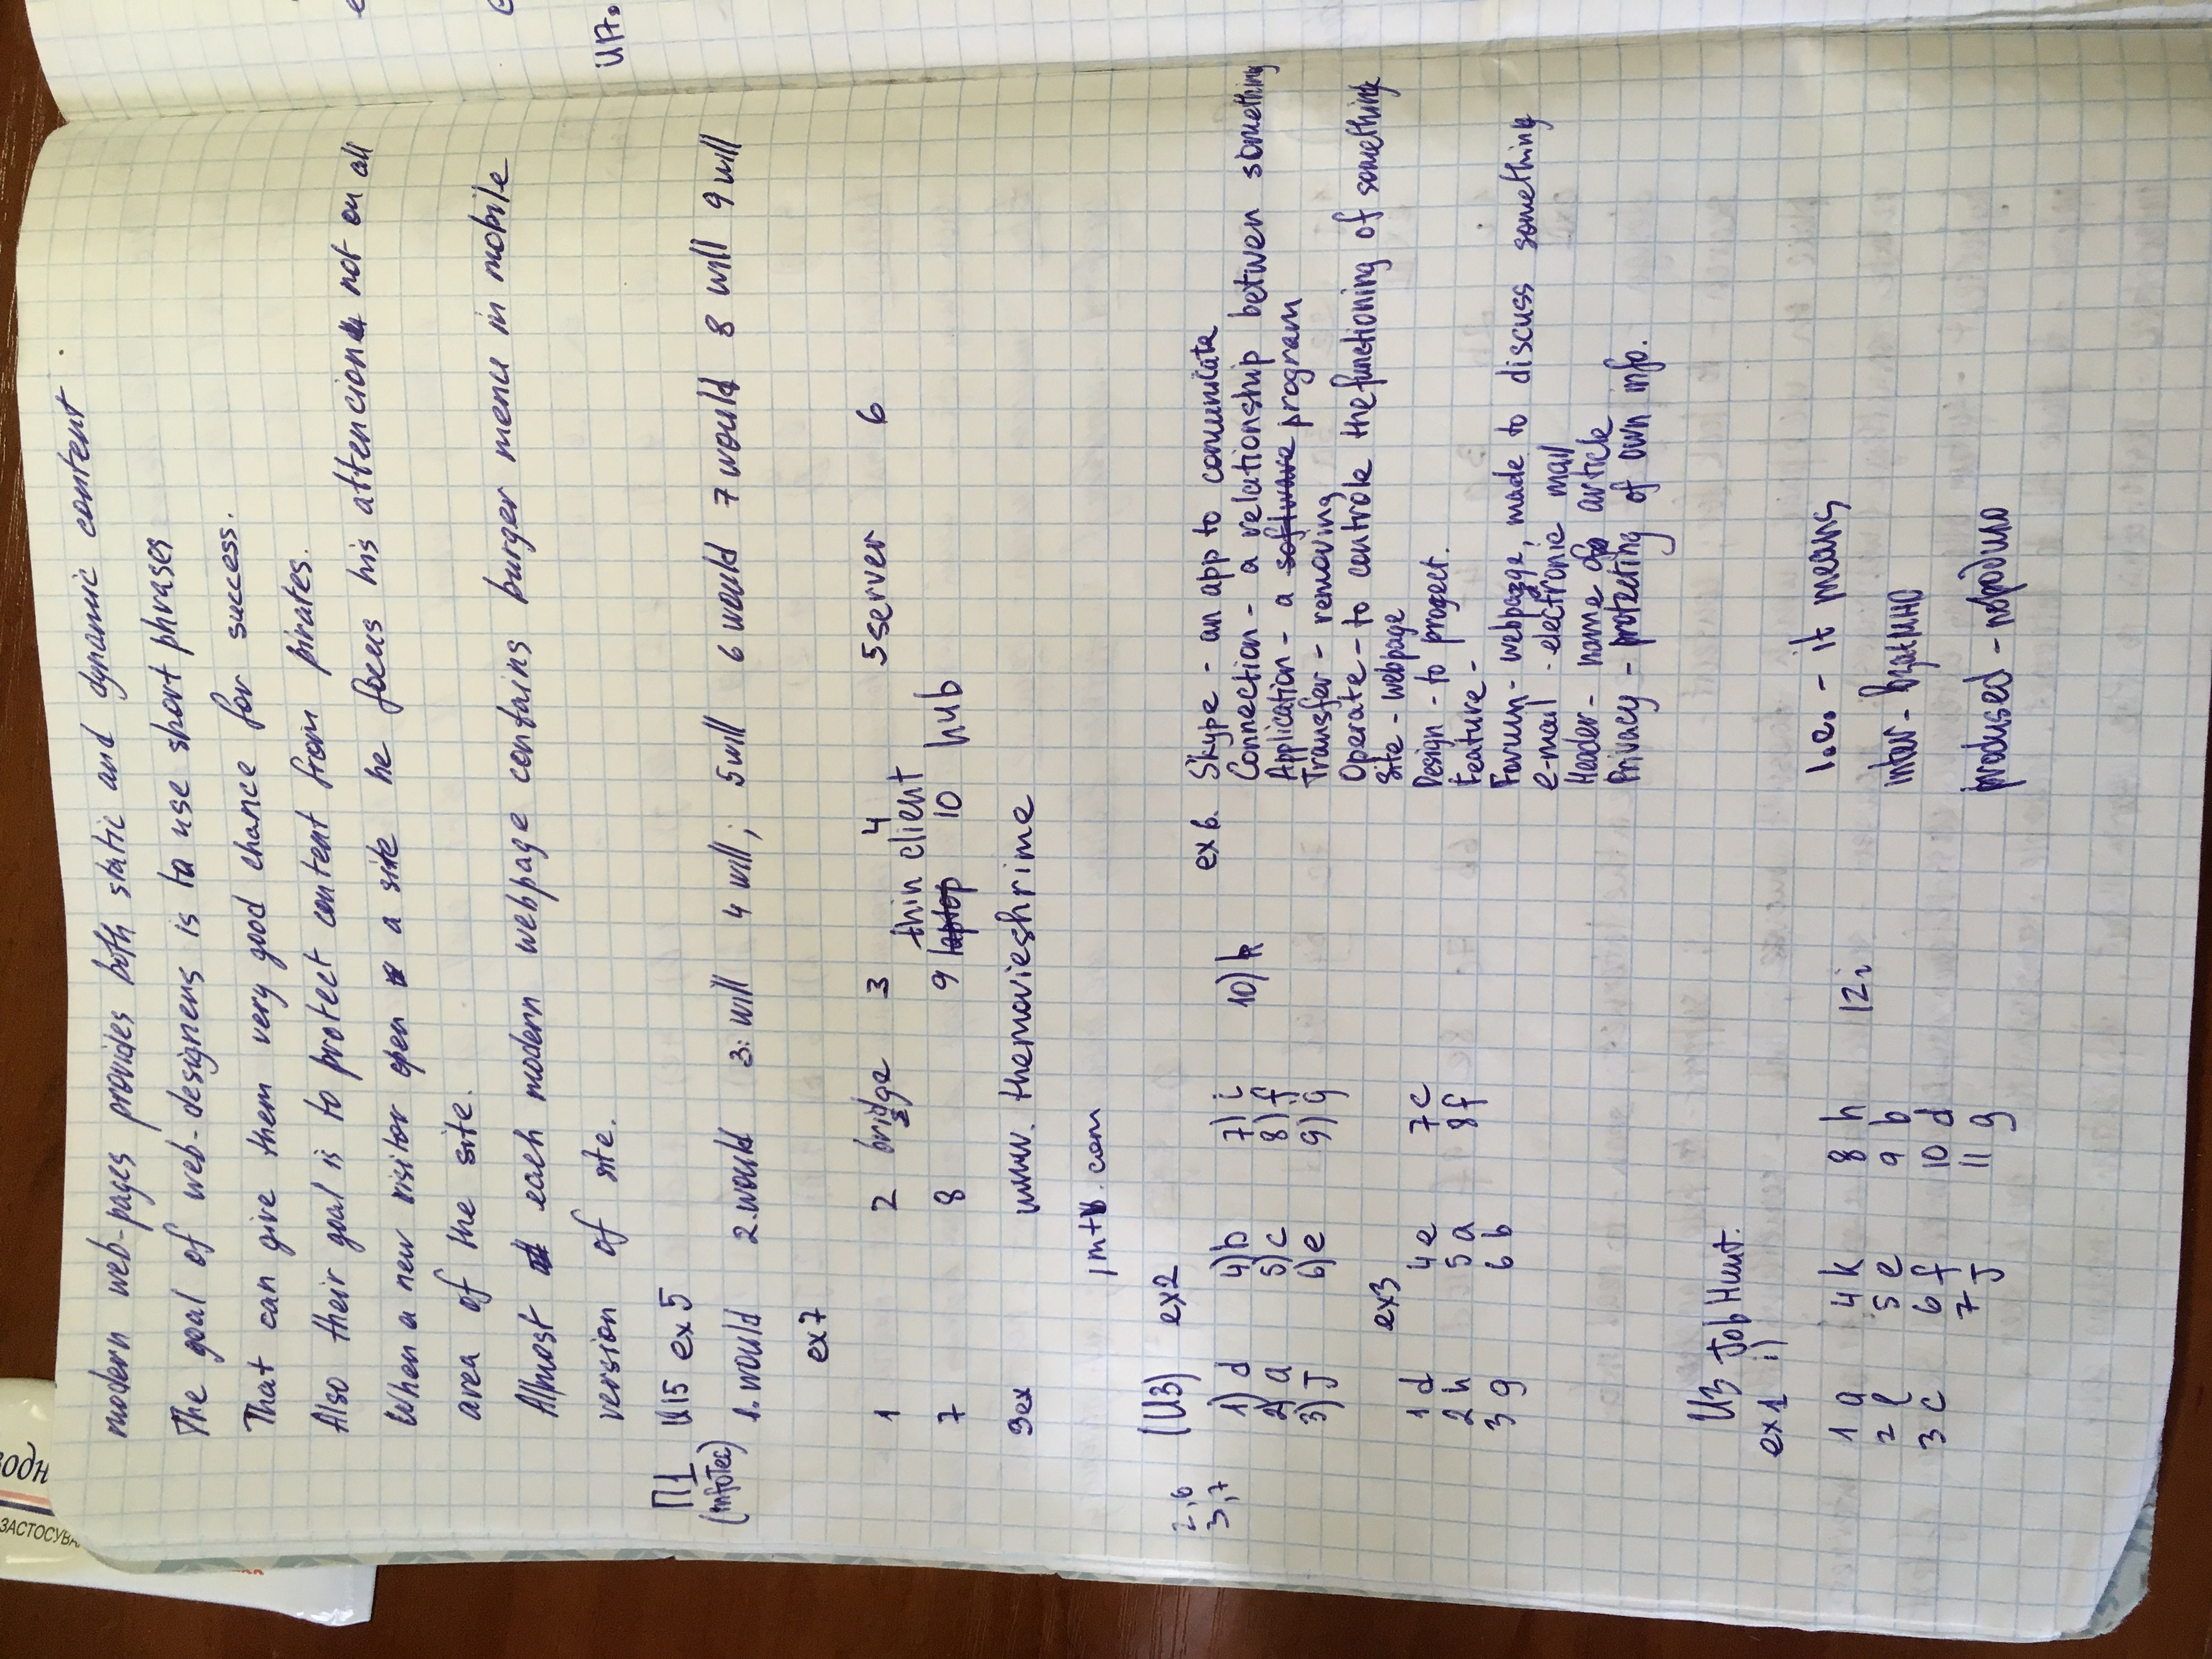 ЗАСТОСУВ
водн
modern web-pages provides both static and dynamic content
The goal of web-designers is to use short phrases
That can give them very good chance for success.
Also their goal is to protect content from pirates.
When a new visitor open a site he focus his attencion not on all
area of the site.
Allmost each modern webpage contains burger menu in mobile
version of site.
П1 U15 ex 5
(InfoTec)
1. would 2. would 3: will 4 will; 5 will 6 would 7 would 8 will 9 will
ex 7
1 2 bridge 3 4 5 server 6
thin client
7 8 9 laptop 10 hub
9ex www. themovieshrime
, mtv. com
(U3) ex2
2,6
3,7
1) d 4) b 7) i 10) h
2) a 5) c 8) f
3) J 6) e 9) g
ex3
1 d 4 e 7 c
2 h 5 a 8 f
3 g 6 b
ex 6. Skype - an app to comunicate
Connection - a relationship betwen something
Application - a software program
Transfer - removing
Operate - to controle the functioning of something
Site - webpage
Design - to progect.
Feature -
Forum - webpage, made to discuss something
e-mail - electronic mail
Header - name of article
Privacy - protecting of own info.
U3 Job Hunt.
ex1 i)
1 a 4 k 8 h 12 i
2 l 5 e 9 b
3 c 6 f 10 d
7 J 11 g
I.e. - it means
inter - взаємно
prodused - породило
U17.